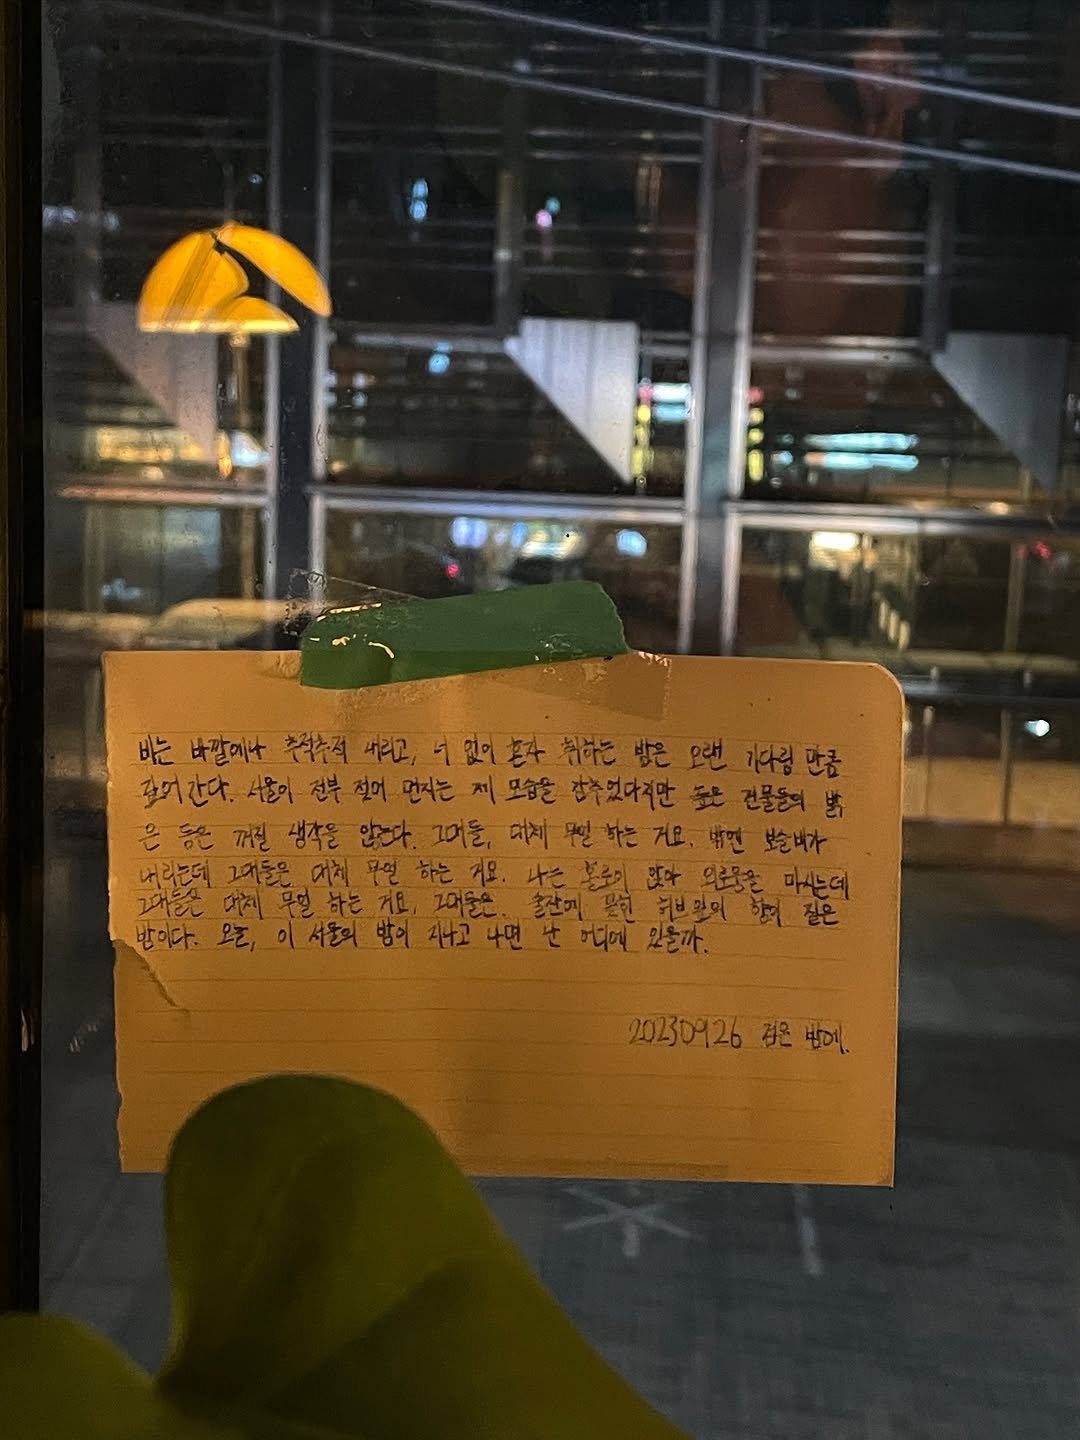 비는 바깥에나 추적추적 내리고, 너 없이 혼자 취하는 밤은 오랜 기다림 만큼
깊어 간다. 서울이 전부 젖어 먼지는 제 모습을 감추었다지만 높은 건물들의 밝
은 등은 꺼질 생각을 않는다. 그대들, 대체 무얼 하는 거요. 밖엔 보슬비가
내리는데 그대들은 대체 무얼 하는 거요. 나는 홀로이 앉아 외로움을 마시는데
그대들은 대체 무얼 하는 거요, 그대들은. 술잔에 꽂힌 허브잎의 향이 짙은
밤이다. 오늘, 이 서울의 밤이 지나고 나면 난 어디에 있을까.
20230926 검은 밤에.